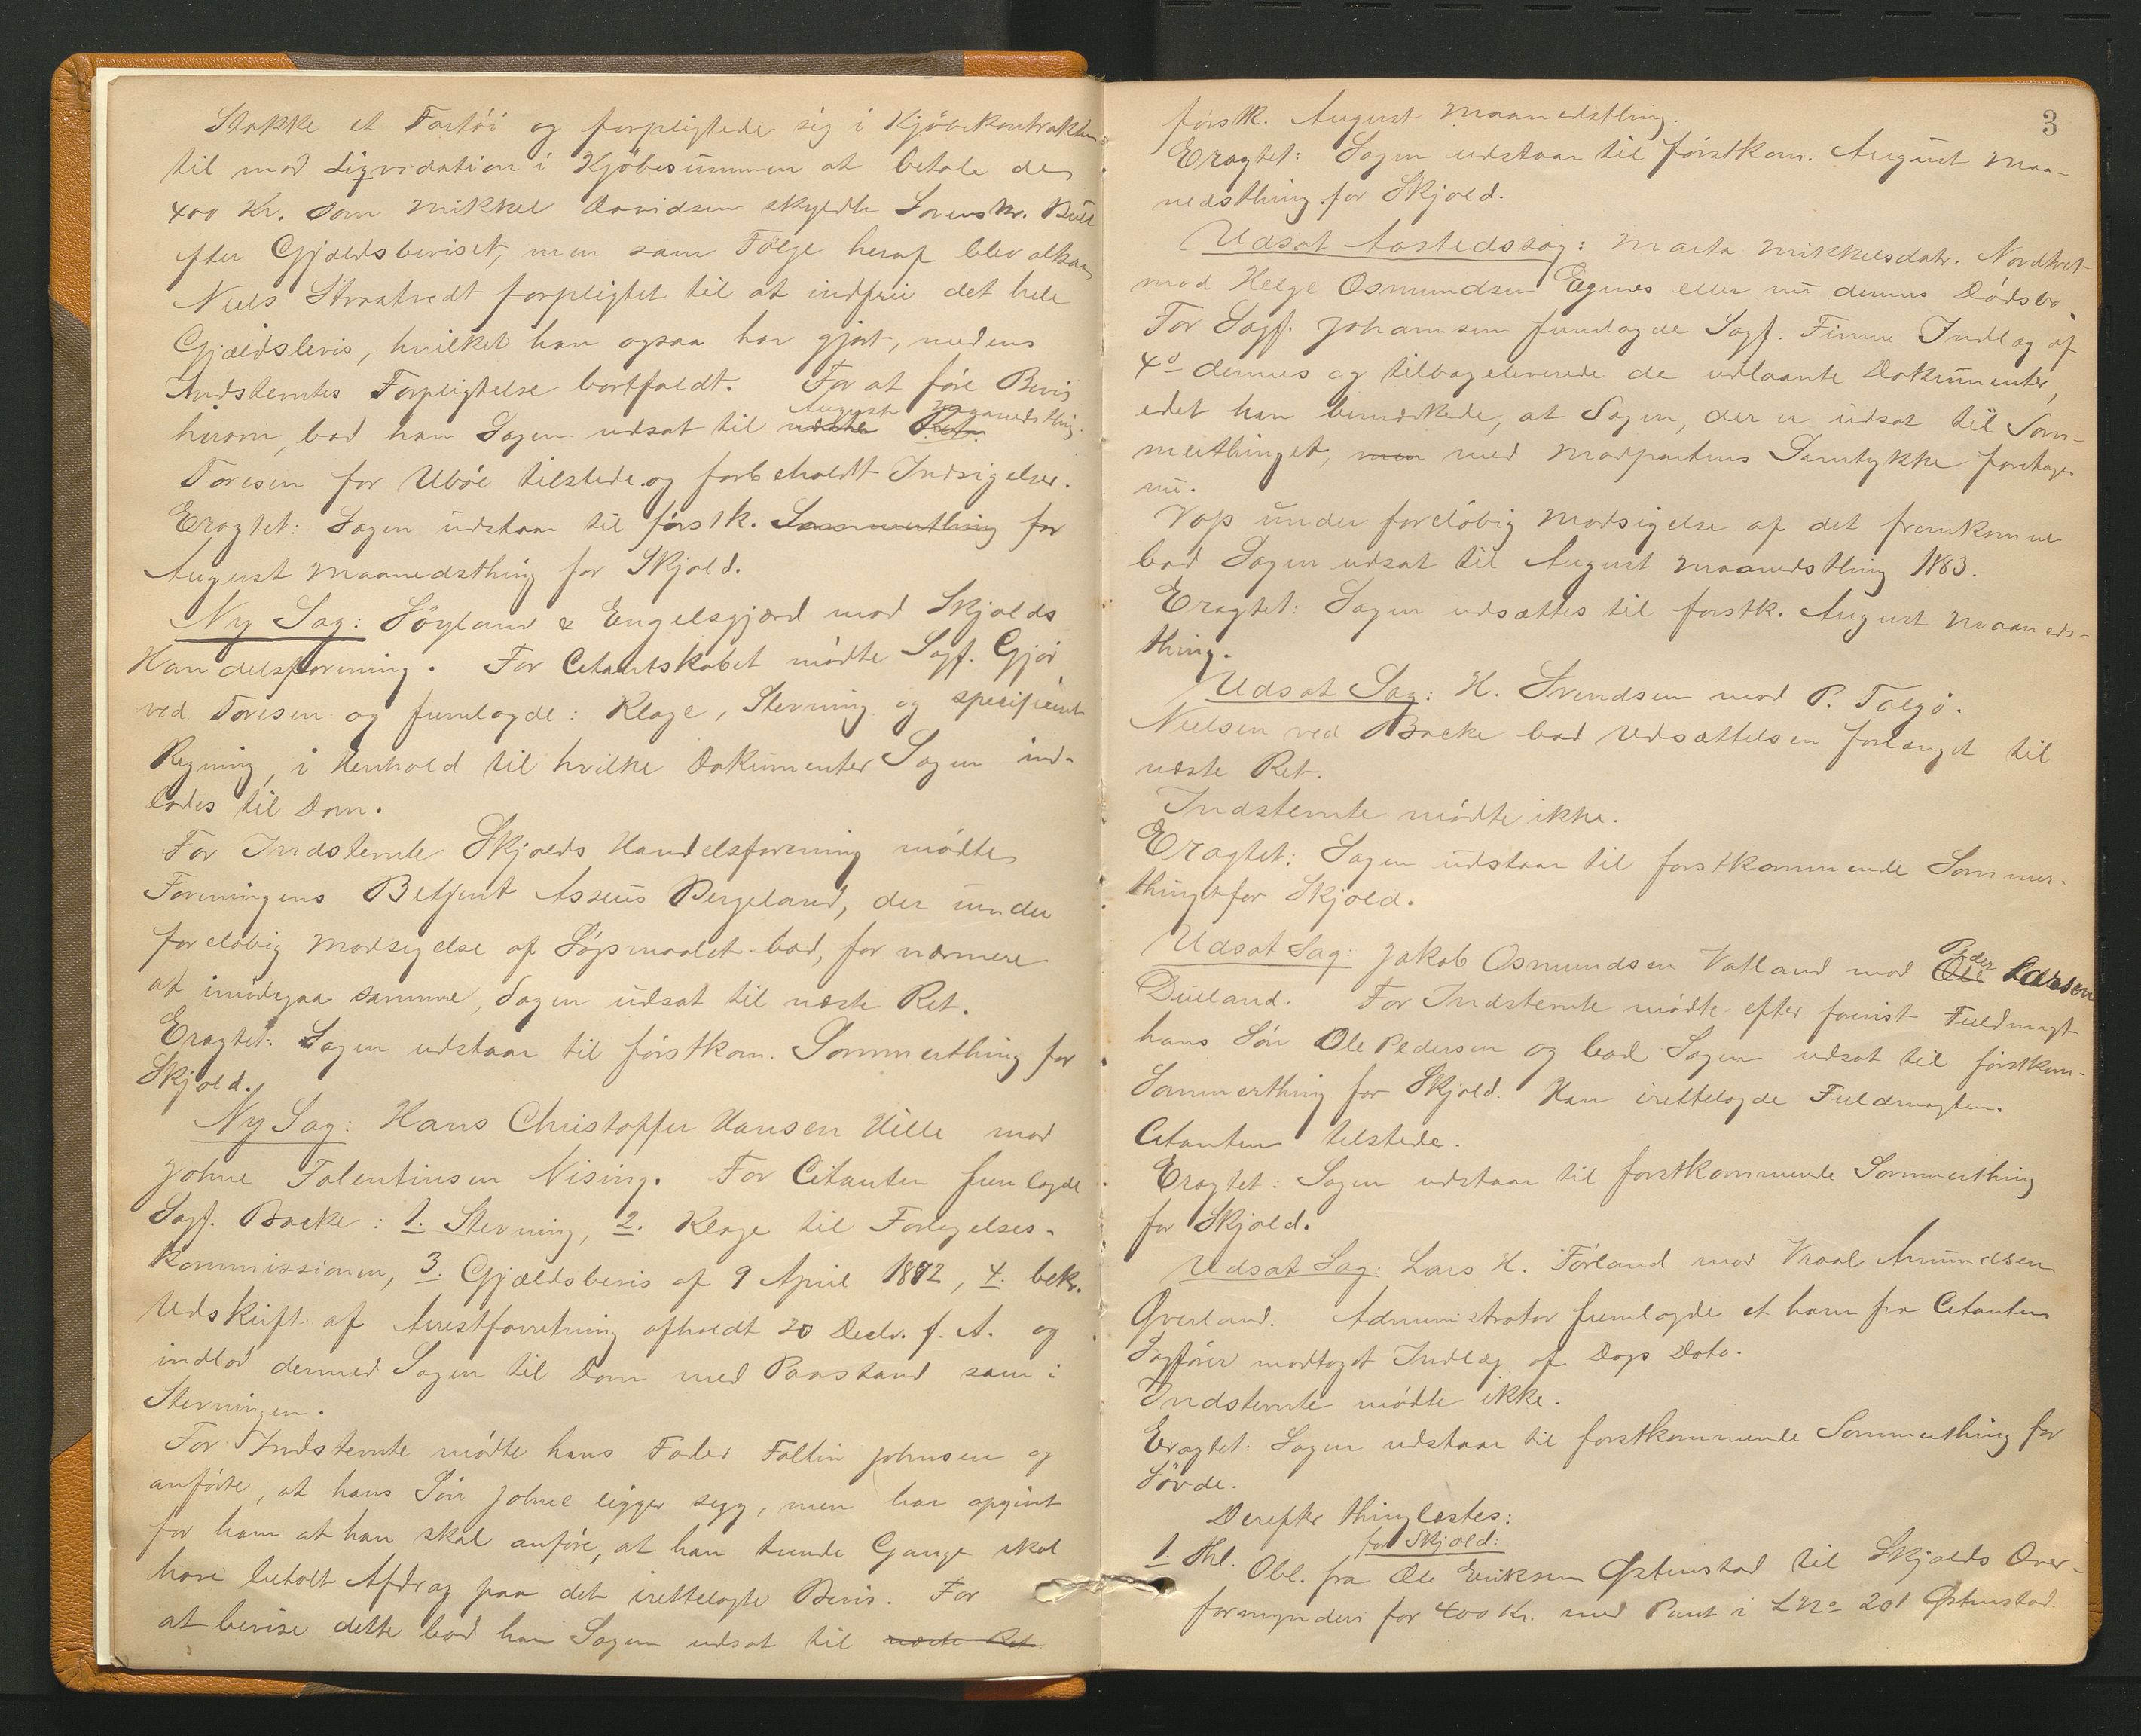 Stakke et Fartöi og forpligtede sig i Kjöbekontrakten
til mod Liqvidation i Kjöbesummen at betale de
400 Kr. som Mikkel Davidsen skyldte
efter Gjældsbeviset, men som Fölge heraf blev altsaa
Niels Straatvedt forpligtet til at indfrie det hele
Gjældsbevis, hvilket han ogsaa har gjort, medens
Indstevntes Forpligtelse bortfaldt. For at före Bevis
herom, bad han Sagen udsat til næste Ret. August Maanedsthing.
Toresen for Uböe tilstede og forbeholdt Indsigelser.
Eragtet: Sagen udstaar til förstk. Sommerthing for
August Maanedsthing for Skjold.
Ny Sag: Söyland & Engelsgjærd mod Skjolds
Handelsforening. For Citantskabet mödte Sagf. Gjör
ved Toresen og fremlagde: Klage, Stevning og specificeret
Regning, i Henhold til hvilke Dokumenter Sagen ind-
lodes til Dom.
For Indstevnte Skjolds Handelsforening mödte
Foreningens Betjent Asseus Bergeland, der under
forelöbig Modsigelse af Söpsmaalet bad, for nærmere
at imödegaa samme, Sagen udsat til næste Ret.
Eragtet: Sagen udstaar til förstkom. Sommerthing for
Skjold.
Ny Sag: Hans Christoffer Hansen Hille mod
Johne Falentinsen Nising. For Citanten fremlagde
Sagf. Backe: 1. Stevning, 2. Klage til Forligelses-
kommissionen, 3. Gjældsbevis af 9 April 1882, 4. bekr.
Udskrift af Arrestforretning afholdt 20 Decbr. f. A. og
indlod dermed Sagen til Dom med Paastand som i
Stevningen.
For Indstevnte mödte hans Fader Faltin Johnsen og
anförte, at hans Sön Johne ligger syg, men har opgivet
for ham at han skal anföre, at han trende Gange skal
have betalt Afdrag paa det irettelagte Bevis. For
at bevise dette bad han Sagen udsat til næste Ret
3
förstk. August Maanedsthing.
Eragtet: Sagen udstaar til förstkom. August Maa-
nedsthing for Skjold.
Udsat Aastedssag: Marta Mikkelsdatr. Nordtvet
mod Helge Osmundsen Egenes eller nu dennes Dödsbo.
For Sagf. Johannsen fremlagde Sagf. Finne Indlæg af
4d dennes og tilbageleverede de udlaante Dokumenter,
idet han bemærkede, at Sagen, der er udsat til Som-
merthinget, men med Modpartens Samtykke foretages
nu.
Vogs under forelöbig Modsigelse af det fremkomne
bad Sagen udsat til August Maanedsthing 1883.
Eragtet: Sagen udsættes til förstk. August Maaneds-
thing.
Udsat Sag: H. Svendsen mod P. Talgö.
Nielsen ved Backe bad Udsættelsen forlænget til
næste Ret.
Indstevnte mödte ikke.
Eragtet: Sagen udstaar til förstkommende Sommer-
thinget for Skjold.
Udsat Sag: Jakob Osmundsen Vatland mod Ole Peder Larsen
Dueland. For Indstevnte mödte efter forevist Fuldmagt
hans Sön Ole Pedersen og bad Sagen udsat til förstkom-
Sommerthing for Skjold. Han irettelagde Fuldmagten.
Citanten tilstede.
Eragtet: Sagen udstaar til förstkommende Sommerthing
for Skjold.
Udsat Sag: Lars H. Förland mod Vraal Amundsen
Qverland. Administrator fremlagde et ham fra Citantens
Sagförer modtaget Indlæg af Dags Dato.
Indstevnte mödte ikke.
Eragtet: Sagen udstaar til förstkommende Sommerthing for
Sövde.
Derefter thinglæstes:
for Skjold:
1. Thl. Obl. fra Ole Eriksen Østenstad til Skjolds Over-
formynderi for 400 Kr. med Pant i LNo 201 Østenstad.